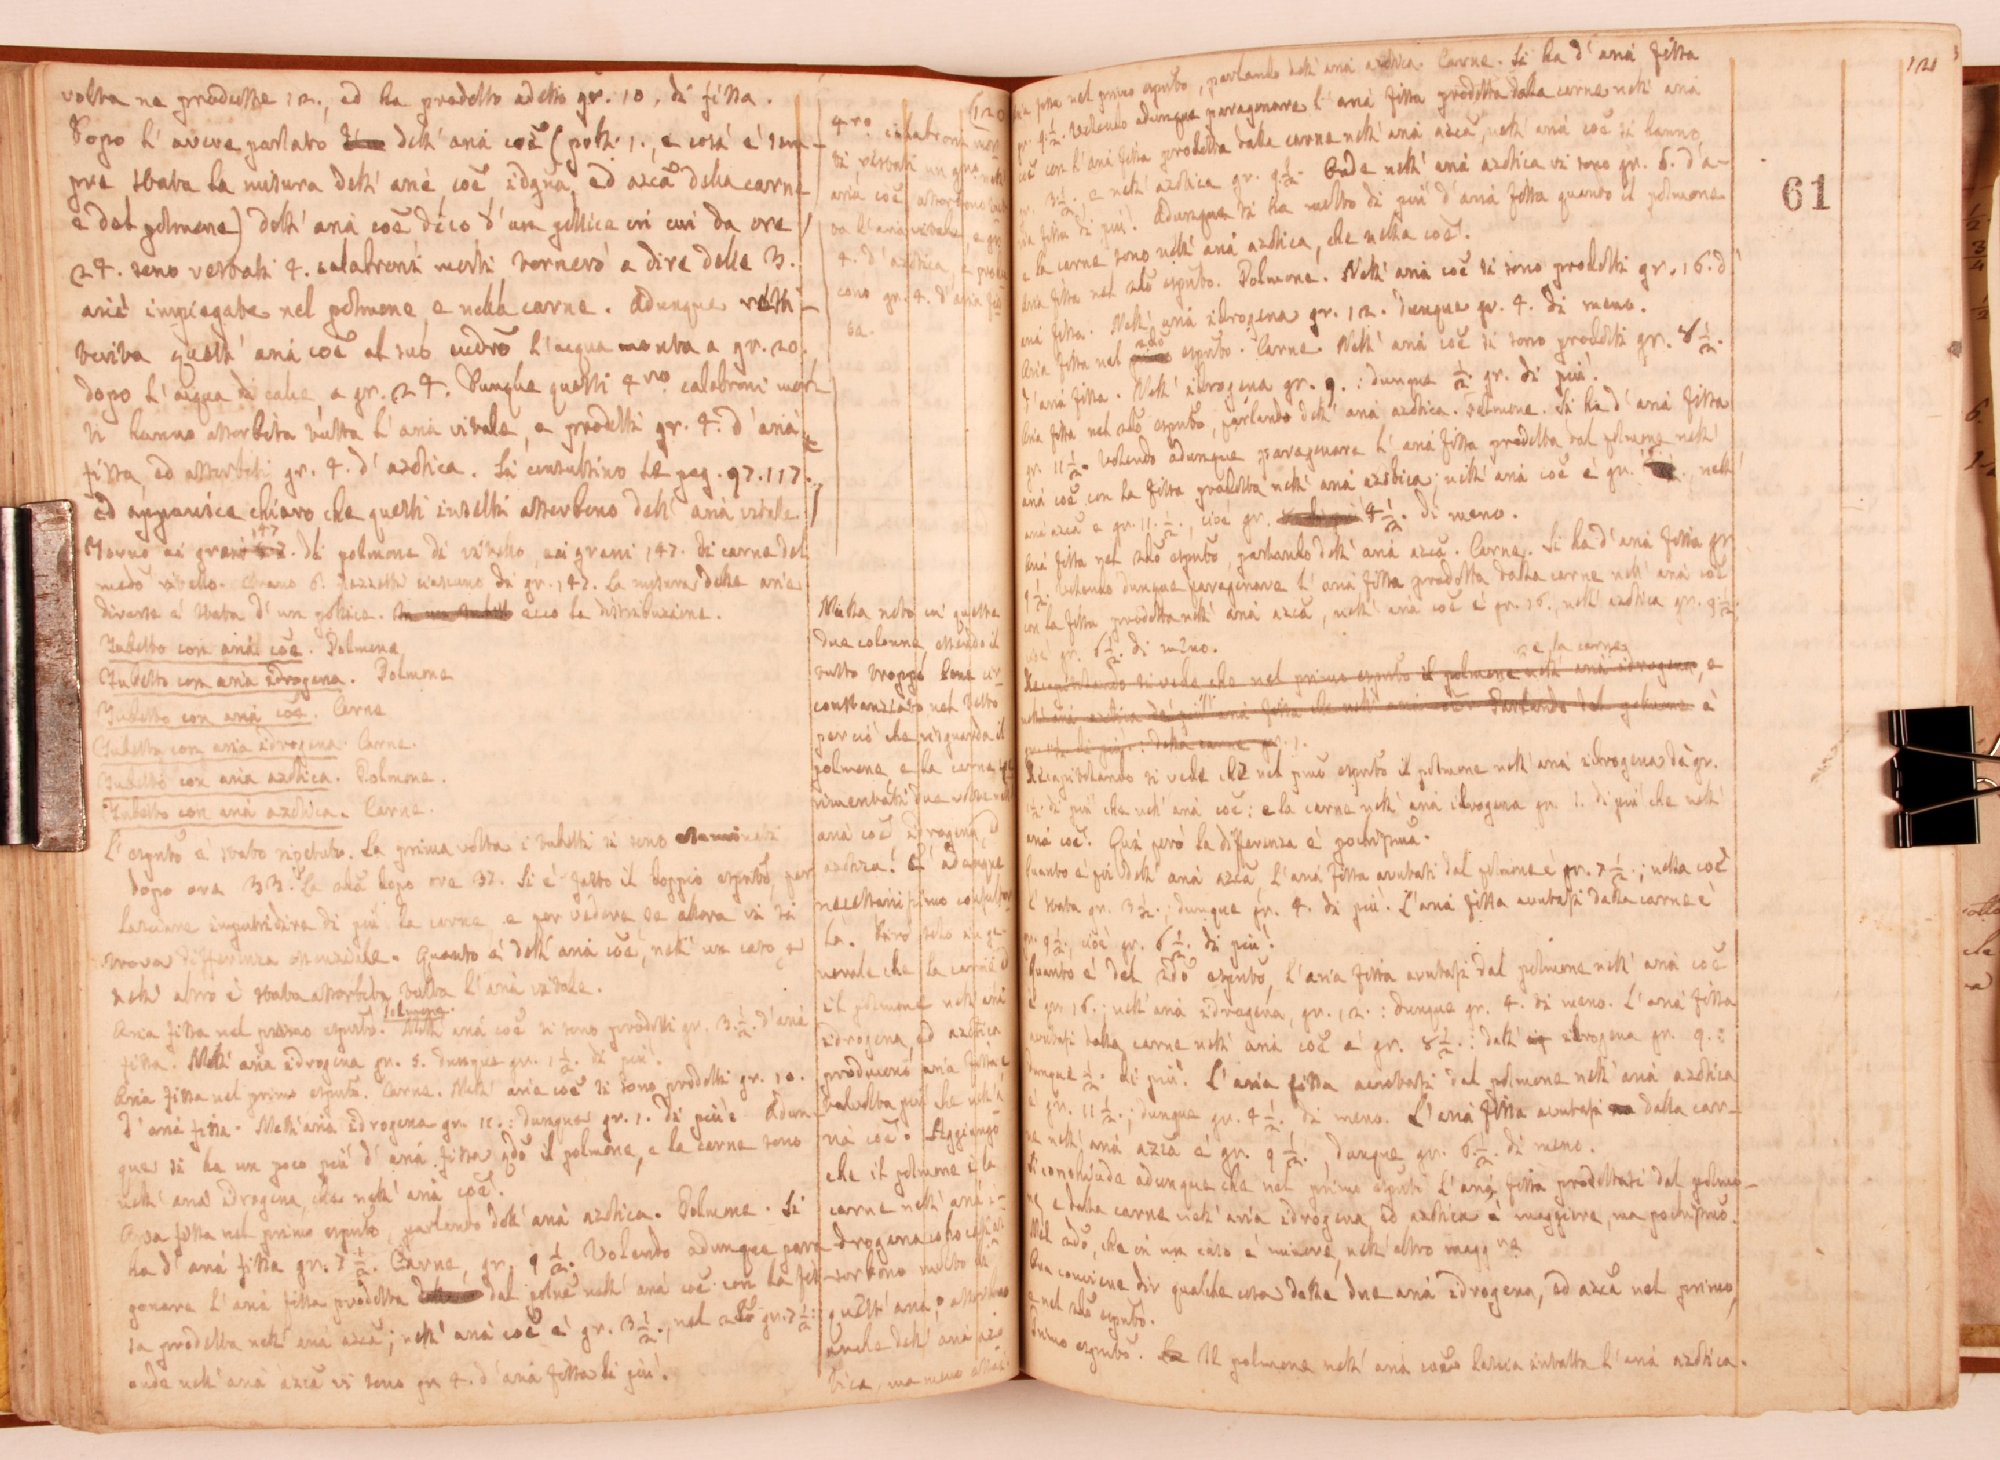 volta ne produsse 12., ed ha prodotto adesso gr. 10. di fissa.
Dopo l'avere parlato dell'aria coe (pollici 1., e così è sem-
pre stata la misura dell'arie, coe idgna, ed azca della carne
e del polmone) dell'aria coe dico d'un pollice in cui da ore
24. sono restati 4. calabroni morti tornerò a dire delle 3.
arie impiegate nel polmone, e nella carne. Adunque resti-
tuita quest'aria coe al suo l'acqua monta a gr. 20.
dopo l'acqua di calce a gr. 24. Dunque questi 4ro calabroni morti
si hanno assorbita tutta l'aria vitale, e prodotti gr. 4. d'aria
fissa, ed assorbiti gr. 4. d'azotica. Si consultino le pag. 97. 117.,
ed apparisce chiaro che questi insetti assorbono dell'aria vitale.
Torno ai grani 147. di polmone di vitello, ai grani 147. di carne del
medo vitello. Erano 6. pezzetti ciascuno di gr. 147. La misura delle arie
diverse è stata d'un pollice. ecco la distribuzione.
Tubetto con aria coe. Polmone
Tubetto con aria idrogena. Polmone
Tubetto con aria coe. Carne
Tubetto con aria idrogena. Carne.
Tubetto con aria azotica. Polmone.
Tubetto con aria azotica. Carne.
L'esptto è stato ripetuto. La prima volta i tubetti si sono esaminati
dopo ore 33. La 2da dopo ore 37. Si è fatto il doppio esptto, per
lasciare imputridire di più la carne, e per vedere se allora vi si
trova differenza essenziale. Quanto è dell'aria coe, nell'un caso, e
nell'altro è stata assorbita tutta l'aria vitale.
Polmone.
Aria fissa nel primo esptto. Nell'aria coe si sono prodotti gr. 3 1/2. d'aria
fissa. Nell'aria idrogena gr. 5. Dunque gr. 1 1/2. di più.
Aria fissa nel primo esptto. Carne. Nell'aria coe si sono prodotti gr. 10.
d'aria fissa. Nell'aria idrogena gr. 11.: dunque gr. 1. di più. Adun-
que si ha un poco più d'aria fissa qdo il polmone, e la carne sono
nell'aria idrogena, che nell'aria coe.
Aria fissa nel primo esptto, parlando dell'aria azotica. Polmone. Si
ha d'aria fissa gr. 7 1/2. Carne, gr. 9 1/2. Volendo adunque para
gonare l'aria fissa prodotta dal polne nell'aria coe con la fis-
sa prodotta nell'aria azca; nell'aria coe è gr. 3 1/2., nel gr. 7 1/2.:
onde nell'aria azca vi sono gr. 4. d'aria fissa di più.
120
4ro calabroni mor
ti restati un giorno nell'
aria coe assorbono tut
ta l'aria vitale, e gr.
4. d'azotica, e produ
cono gr. 4. d'aria fis
sa.
Nulla noto in queste
due colonne, essendo il
tutto troppo bene cir-
constanziato nel testo
per ciò che risguarda il
polmone, e la carne spe
rimentati due volte nell'
aria coe, idrogena, ed
azotica. È adunque
necessarissimo consultar
la. Dirò solo in ge-
nerale che la carne, e
il polmone nell'aria
idrogena, ed azotica
producono aria fissa, e
talvolta più che nell'a
ria coe. Aggiungo
che il polmone, e la
carne nell'aria i-
drogena
sorbono molto di
quest'aria, e assorbono
anche dell'aria azo
tica, ma meno assai.
121
61
sia fissa nel primo esptto, parlando dell'aria azotica. Carne. Si ha d'aria fissa
gr. 9 1/2. Volendo adunque paragonare l'aria fissa prodotta dalla carne nell'aria
coe con l'aria fissa prodotta dalla carne nell'aria azca, nell'aria coe si hanno
gr. 3 1/2., e nell'azotica gr. 9 1/2. Onde nell'aria azotica vi sono gr. 6. d'a-
ria fissa di più. Adunque si ha molto di più d'aria fissa quando il polmone
e la carne sono nell'aria azotica, che nella coe.
Aria fissa nel 2do esptto. Polmone. Nell'aria coe si sono prodotti gr. 16. d'
aria fissa. Nell'aria idrogena gr. 12. Dunque gr. 4. di meno.
Aria fissa nel 2do esptto. Carne. Nell'aria coe si sono prodotti gr. 8 1/2.
d'aria fissa. Nell'idrogena gr. 9.: dunque 1/2. gr. di più.
Aria fissa nel 2do esptto, parlando dell'aria azotica. Polmone. Si ha d'aria fissa
gr. 11 1/2. Volendo adunque paragonare l'aria fissa prodotta dal polmone nell'
aria coe con la fissa prodotta nell'aria azotica; nell'aria coe è gr. , nell'
aria azca è gr. 11 1/2., cioè gr. 4 1/2. di meno.
Aria fissa nel 2do esptto, parlando dell'aria azca. Carne. Si ha d'aria fissa gr.
9 1/2. Volendo dunque paragonare l'aria fissa prodotta dalla carne nell'aria coe
con la fissa prodotta nell'aria azca, nell'aria coe è gr. 16., nell'azotica gr. 9 1/2.
cioè gr. 6 1/2. di meno.
e la carne
Recapitolando si vede che nel primo esptto il polmone nell'aria idrogena, e
nell'aria azotica dà più aria fissa che nell'aria coe. Parlando del polmone è
gr. 1 1/2. di più: della carne gr. 1.
Recapitolando si vede che nel pmo esptto il polmone nell'aria idrogena dà gr.
1/2. di più che nell'aria coe: e la carne nell'aria idrogena gr. 1. di più che nell'
aria coe. Qui però la differenza è pochissima.
Quanto è poi dell'aria azca, l'aria fissa avutasi dal polmone è gr. 7 1/2.; nella coe
l'è stata gr. 3 1/2.; dunque gr. 4. di più. L'aria fissa avutasi dalla carne è
gr. 9 1/2., cioè gr. 6 1/2. di più.
Quanto è del 2do esptto, l'aria fissa avutasi dal polmone nell'aria coe
è gr. 16.; nell'aria idrogena, gr. 12.: dunque gr. 4. di meno. L'aria fissa
avutasi dalla carne nell'aria coe è gr. 8 1/2.: dell'idrogena gr. 9.:
dunque 1/2. di più. L'aria fissa avutasi dal polmone nell'aria azotica
è gr. 11 1/2.; dunque gr. 4 1/2. di meno. L'aria fissa avutasi dalla car-
ne nell'aria azca è gr. 9 1/2., dunque gr. 6 1/2. di meno.
Si conchiude adunque che nel primo esptto l'aria fissa prodottasi dal polmo-
ne, e dalla carne nell'aria idrogena, ed azotica è maggiore, ma pochissimo.
Nel 2do, che in un caso è minore, nell'altro maggre
Ora conviene dir qualche cosa delle due aria idrogena, ed azca nel primo,
e nel 2do esptto.
Primo esptto. Il polmone nell'aria coe lascia intatta l'aria azotica.